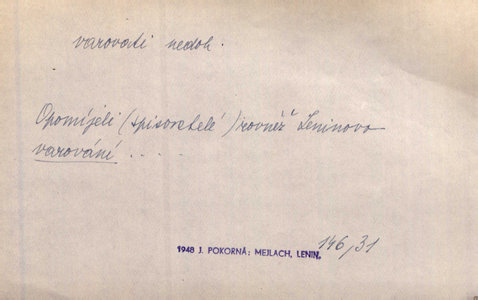 varovati nedok.
Opomíjeli (spisovatelé) rovněž Leninovo
varování ....
1948 J. POKORNÁ: MEJLACH, LENIN, 146,31